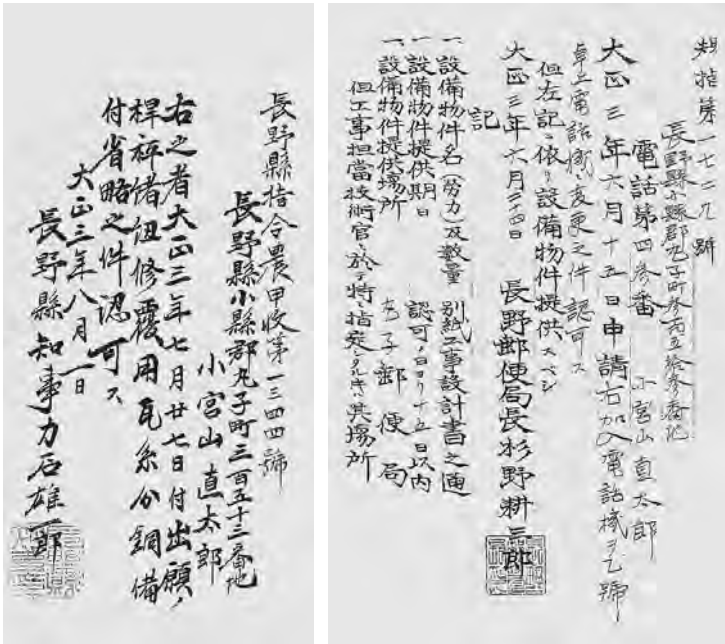 規指第一七二九號
長野縣小縣郡丸子町参百五拾参番地
電話第四参番 小宮山直太郎
大正三年六月十五日申請右加入電話機ヲ乙號
卓上電話機ニ変更之件認可ス
但左記ニ依リ設備物件提供スベシ
大正三年六月三十四日
長野郵便局長杉野耕三郎
記
一、設備物件名(労力)及数量 別紙工事設計書之通
一、設備物件提供期日 認可ノ日ヨリ十五日以内
一、設備物件提供場所 丸子郵便局
但工事担當技術官ニ於テ特ニ指定シタルトキハ其場所
長野縣指令農甲收第一三四四號
長野縣小縣郡丸子町三百五十三番地
小宮山直太郎
右之者大正三年七月廿七日付出願ノ
桿秤緒紐修覆用瓦系分銅備
付省略之件認可ス
大正三年八月一日
長野縣知事力石雄一郎